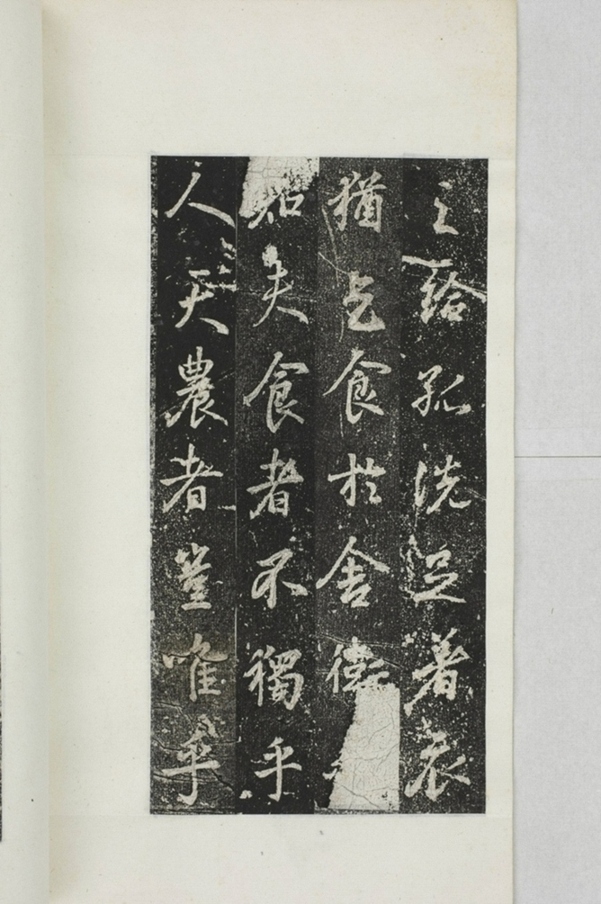 之給孤洗足著衣
猶乞食於舍衛
知夫食者不獨乎
人天農者豈唯乎